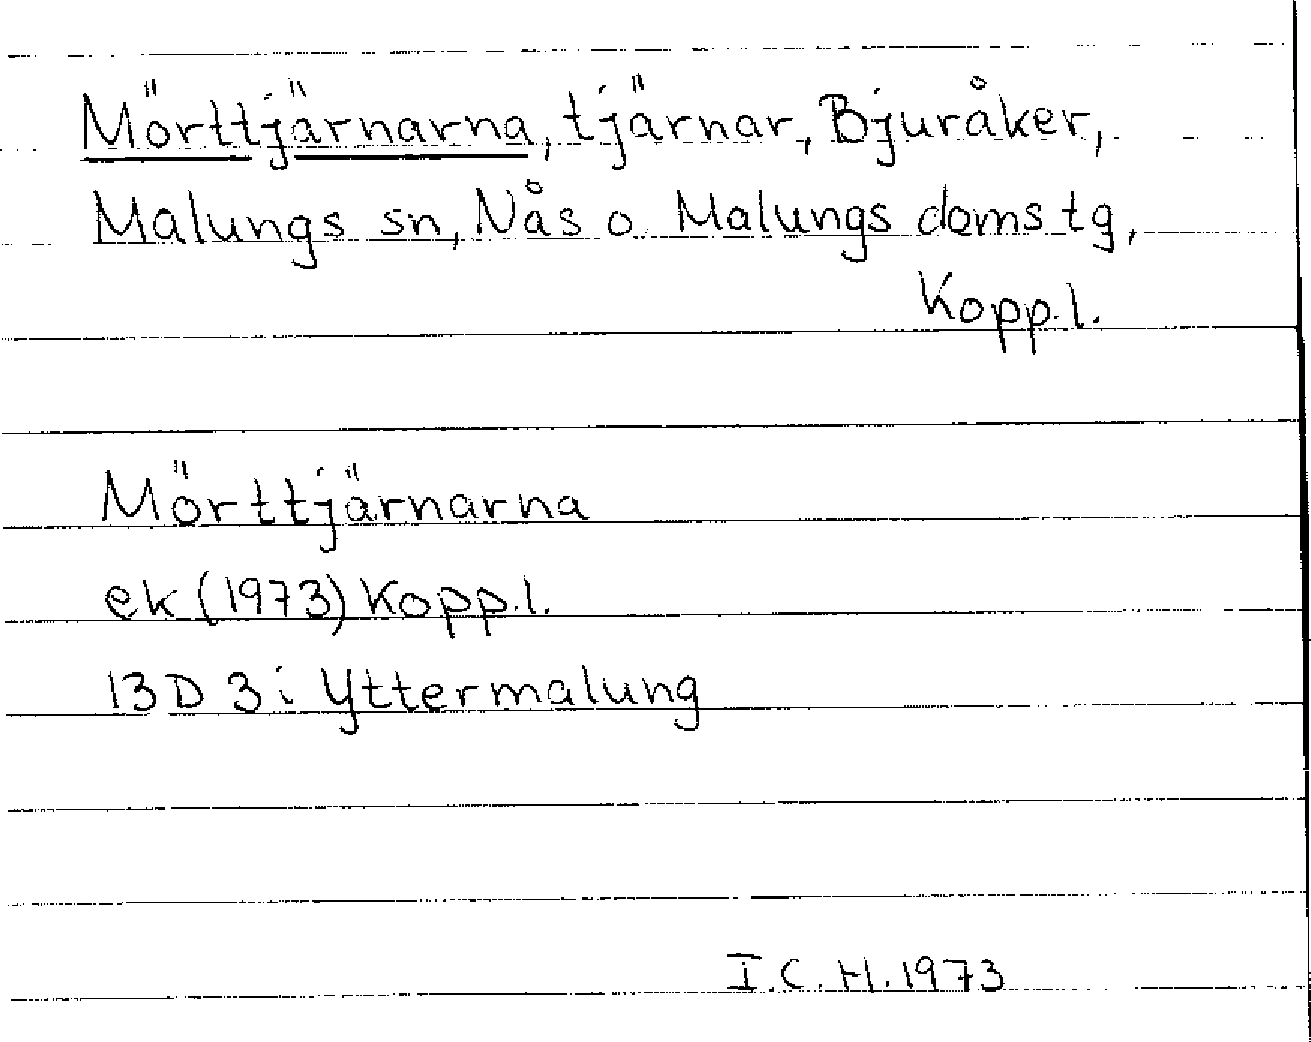 Mörttjärnarna, tjärnar, Bjuråker,
Malungs sn, Nås o. Malungs doms.tg,
Kopp.l.
Mörttjärnarna
ek (1973) Kopp.l.
13D 3i Yttermalung
I.C.H. 1973